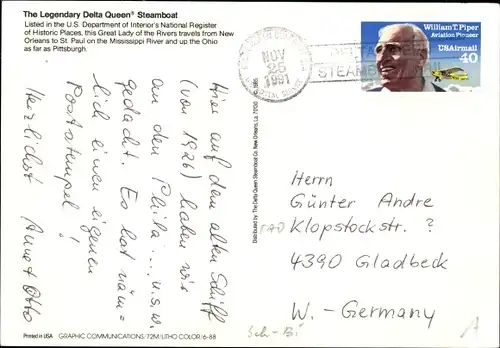 The Legendary Delta Queen® Steamboat
Listed in the U.S. Department of Interior's National Register
of Historic Places, this Great Lady of the Rivers travels from New
Orleans to St. Paul on the Mississippi River and up the Ohio
as far as Pittsburgh.
NOV
25
1991
STEAMBOAT
William T. Piper
Aviation Pioneer
USAirmail
40
Hier auf dem alten Schiff
(von 1926) haben wir
an den Phila... u.s.w.
gedacht. Es hat näm=
lich einen eigenen
Poststempel!
Herzlichst Annet Otto
Distributed by The Delta Queen Steamboat Co. New Orleans, La. 70130
Herrn
Günter Andre
Klopstockstr. ?
4390 Gladbeck
W.-Germany
Sch-Bi
Printed in USA GRAPHIC COMMUNICATIONS/72M/LITHO COLOR/6-88